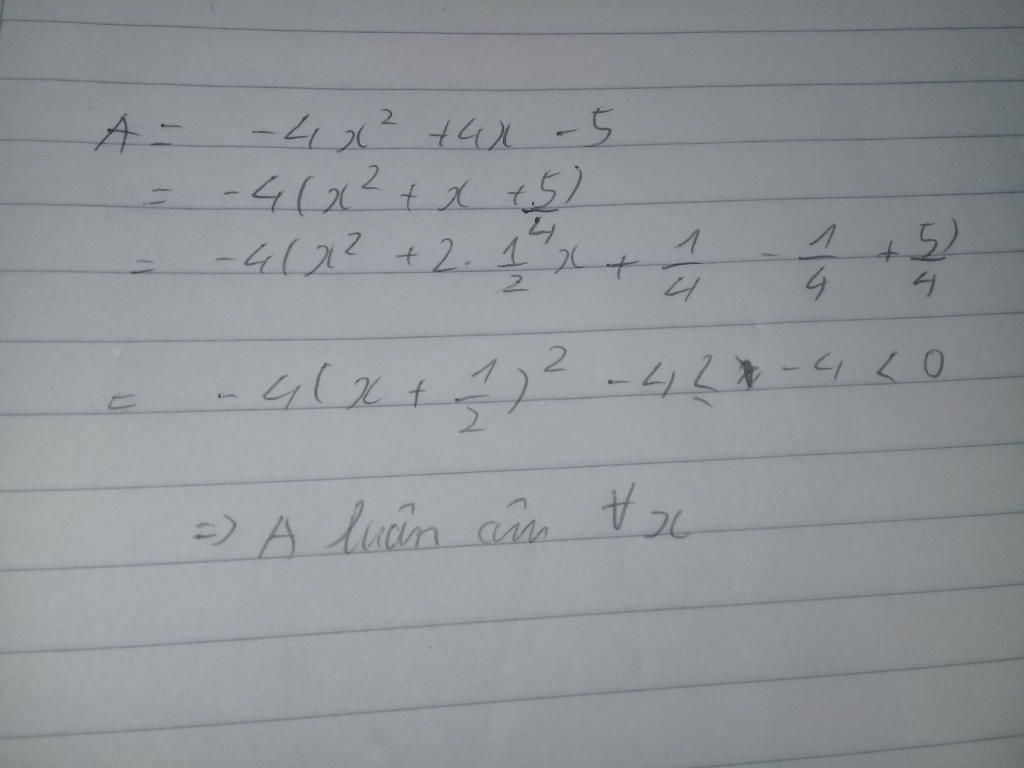 A = -4x² +4x -5
= -4(x² + x + 5/4)
= -4(x² + 2. 1/2 x + 1/4 - 1/4 + 5/4)
= -4(x + 1/2)² - 4 ≤ -4 < 0
=> A luân âm ∀x